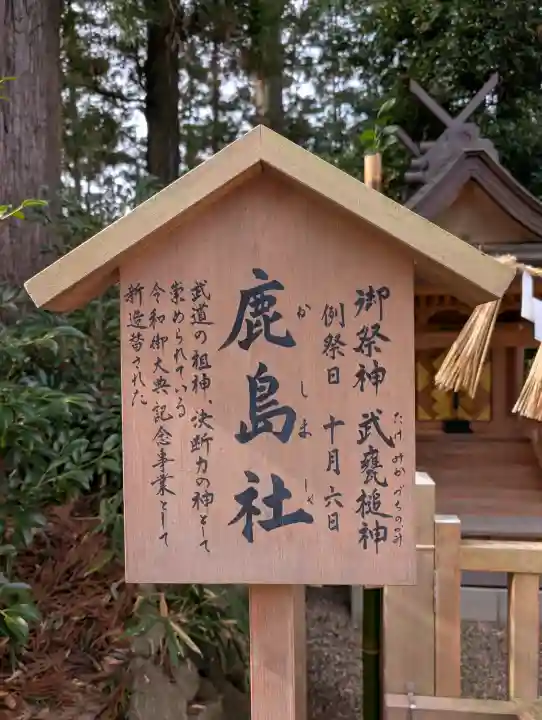 御祭神 武甕槌神
たけみかづちのかみ
例祭日 十月六日
鹿島社
かしましゃ
武道の祖神、決断力の神として
崇められている
令和御大典記念事業として
新造営された